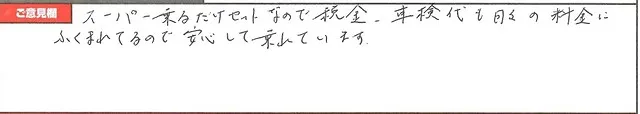 ご意見欄
スーパー乗るだけセットなので税金、車検代も月々の料金に
ふくまれてるので安心して乗れています。